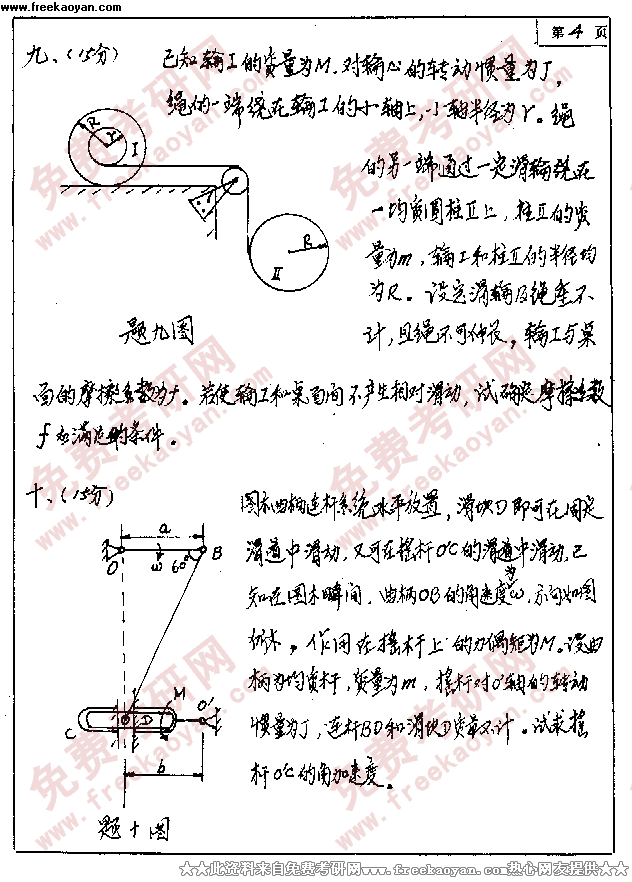 www.freekaoyan.com
第 4 页
九、(15分) 已知轮I的质量为M.对轮心的转动惯量为J,
绳的一端绕在轮I的小轴上,小轴半径为r。绳
的另一端通过一定滑轮绕在
一均质圆柱II上,柱II的质
量为m,轮I和柱II的半径均
为R。设定滑轮及绳重不
计,且绳不可伸长,轮I与桌
R
r
I
R
II
题九图
面的摩擦系数为f。若使轮I和桌面间不产生相对滑动,试确定摩擦系数
f应满足的条件。
十、(15分)
图示曲柄连杆系统水平放置,滑块D即可在固定
滑道中滑动,又可在摇杆O'C的滑道中滑动,已
知在图示瞬间,曲柄OB的角速度为ω,方向如图
所示,作用在摇杆上的力偶矩为M。设曲
柄为均质杆,质量为m,摇杆对O'轴的转动
惯量为J,连杆BD和滑块D质量不计。试求摇
杆O'C的角加速度。
a
O
ω
60°
B
M
O'
D
C
b
题十图
★★此资料来自免费考研网www.freekaoyan.com热心网友提供★★
免费考研网
www.freekaoyan.com
免费考研网
www.freekaoyan.com
免费考研网
www.freekaoyan.com
免费考研网
www.freekaoyan.com